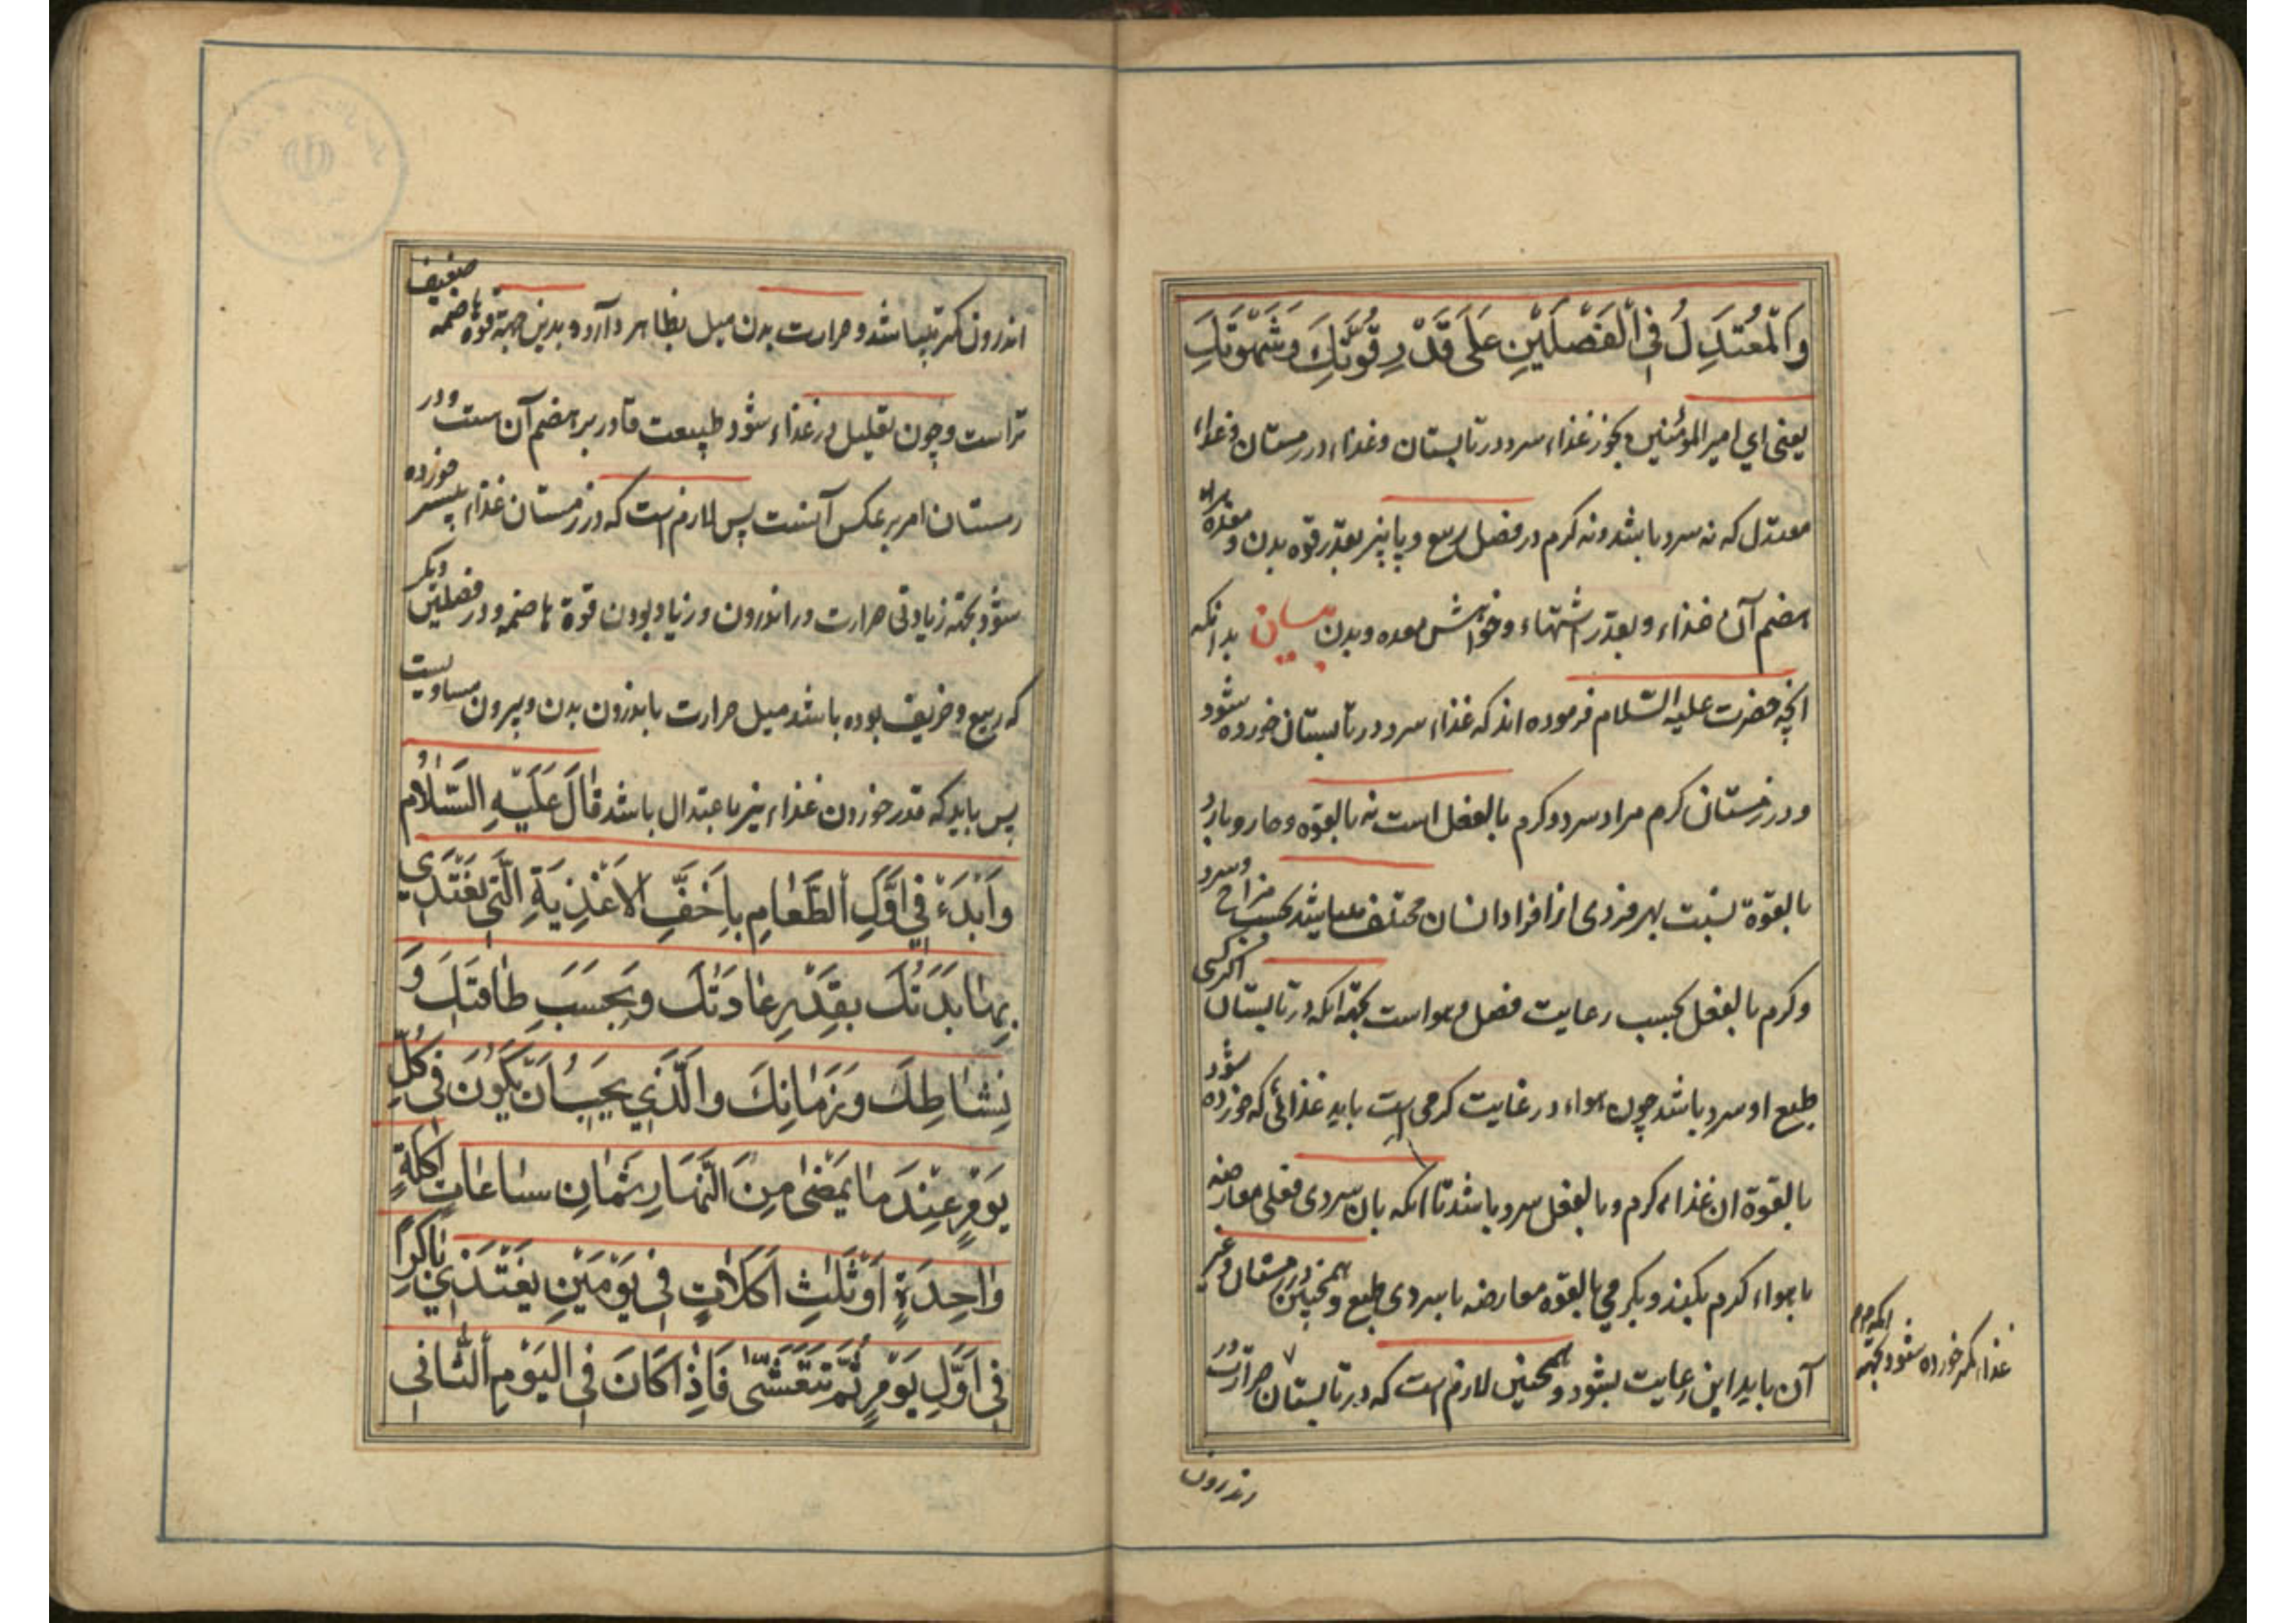 وَالْمُعْتَدِلُ فِی الْفَصْلَیْنِ عَلَی قَدْرِ قُوَّتِكَ وَشَهْوَتِكَ
یعنی ای امیر المؤمنین و بخور غذاء سرد در تابستان وغذاء در زمستان وغذاء
معتدل که نه سرد باشد ونه کرم در فصل ربیع و پاییز بقدر قوه بدن و معده براه
هضم آن غذاء و بقدر اشتهاء وخواهش معده وبدن بیان بدانکه
انچه حضرت علیه السّلام فرموده اند که غذاء سرد در تابستان خورده شود
و در زمستان کرم مراد سرد وکرم بالفعل است نه بالقوّه وحار وبارد
بالقوّة نسبت بهر فردی از افراد انسان مختلف میباشد بحسب مزاج وسرد
وکرم بالفعل بحسب رعایت فصل و هواست بجهة انکه در تابستان اکر کسی
طبع او سرد باشد چون هواء در غایت کرمی است باید غذائی که خورده شود
بالقوّة ان غذاء کرم و بالفعل سرد باشد تا انکه بان سردی فعلی معارضه
با هواء کرم بکند و بکرمی بالقوّه معارضه با سردی طبع و همچنین در زمستان وغیر
آن باید این رعایت بشود و همچنین لازم است که در تابستان حرارت در
غذاء کمتر خورده شود بجهة
انکه
اندرون
اندرون کمتر میباشد و حرارت بدن میل بظاهر دارد و بدین جهة قوّه هاضمه ضعیف
تر است و چون تقلیل در غذاء شود طبیعت قادر بر هضم آن است و در
زمستان امر بر عکس آنست پس لازم است که در زمستان غذاء بیشتر خورده
شود بجهة زیادتی حرارت در اندرون و زیاد بودن قوّة هاضمه و در فصلین دیکر
که ربیع و خریف بوده باشد میل حرارت باندرون بدن و بیرون مساویست
پس باید که قدر خوردن غذاء نیز باعتدال باشد قٰالَ عَلَیْهِ السَّلٰامُ
وَابْدَءْ فِی اَوَّلِ الطَّعٰامِ بِاَخَفِّ الْاَغْذِیَةِ الَّتِی یَغْتَذِی
بِهٰا بَدَنُكَ بِقَدْرِ عٰادَتِكَ وَبِحَسَبِ طٰاقَتِكَ وَ
نِشٰاطِكَ وَزَمٰانِكَ وَالَّذِی یَجِبُ اَنْ یَكُونَ فِی كُلِّ
یَوْمٍ عِنْدَ مٰا یَمْضٰی مِنَ النَّهٰارِ ثَمٰانِ سٰاعٰاتٍ اَكْلَةٍ
وٰاحِدَةٍ اَوْ ثَلٰثِ اَكَلٰاتٍ فِی یَوْمَیْنِ یَغْتَذِی بٰاكِراً
فِی اَوَّلِ یَوْمٍ ثُمَّ تَتَعَشّٰی فَاِذٰا كٰانَ فِی الْیَوْمِ الثّٰانِی